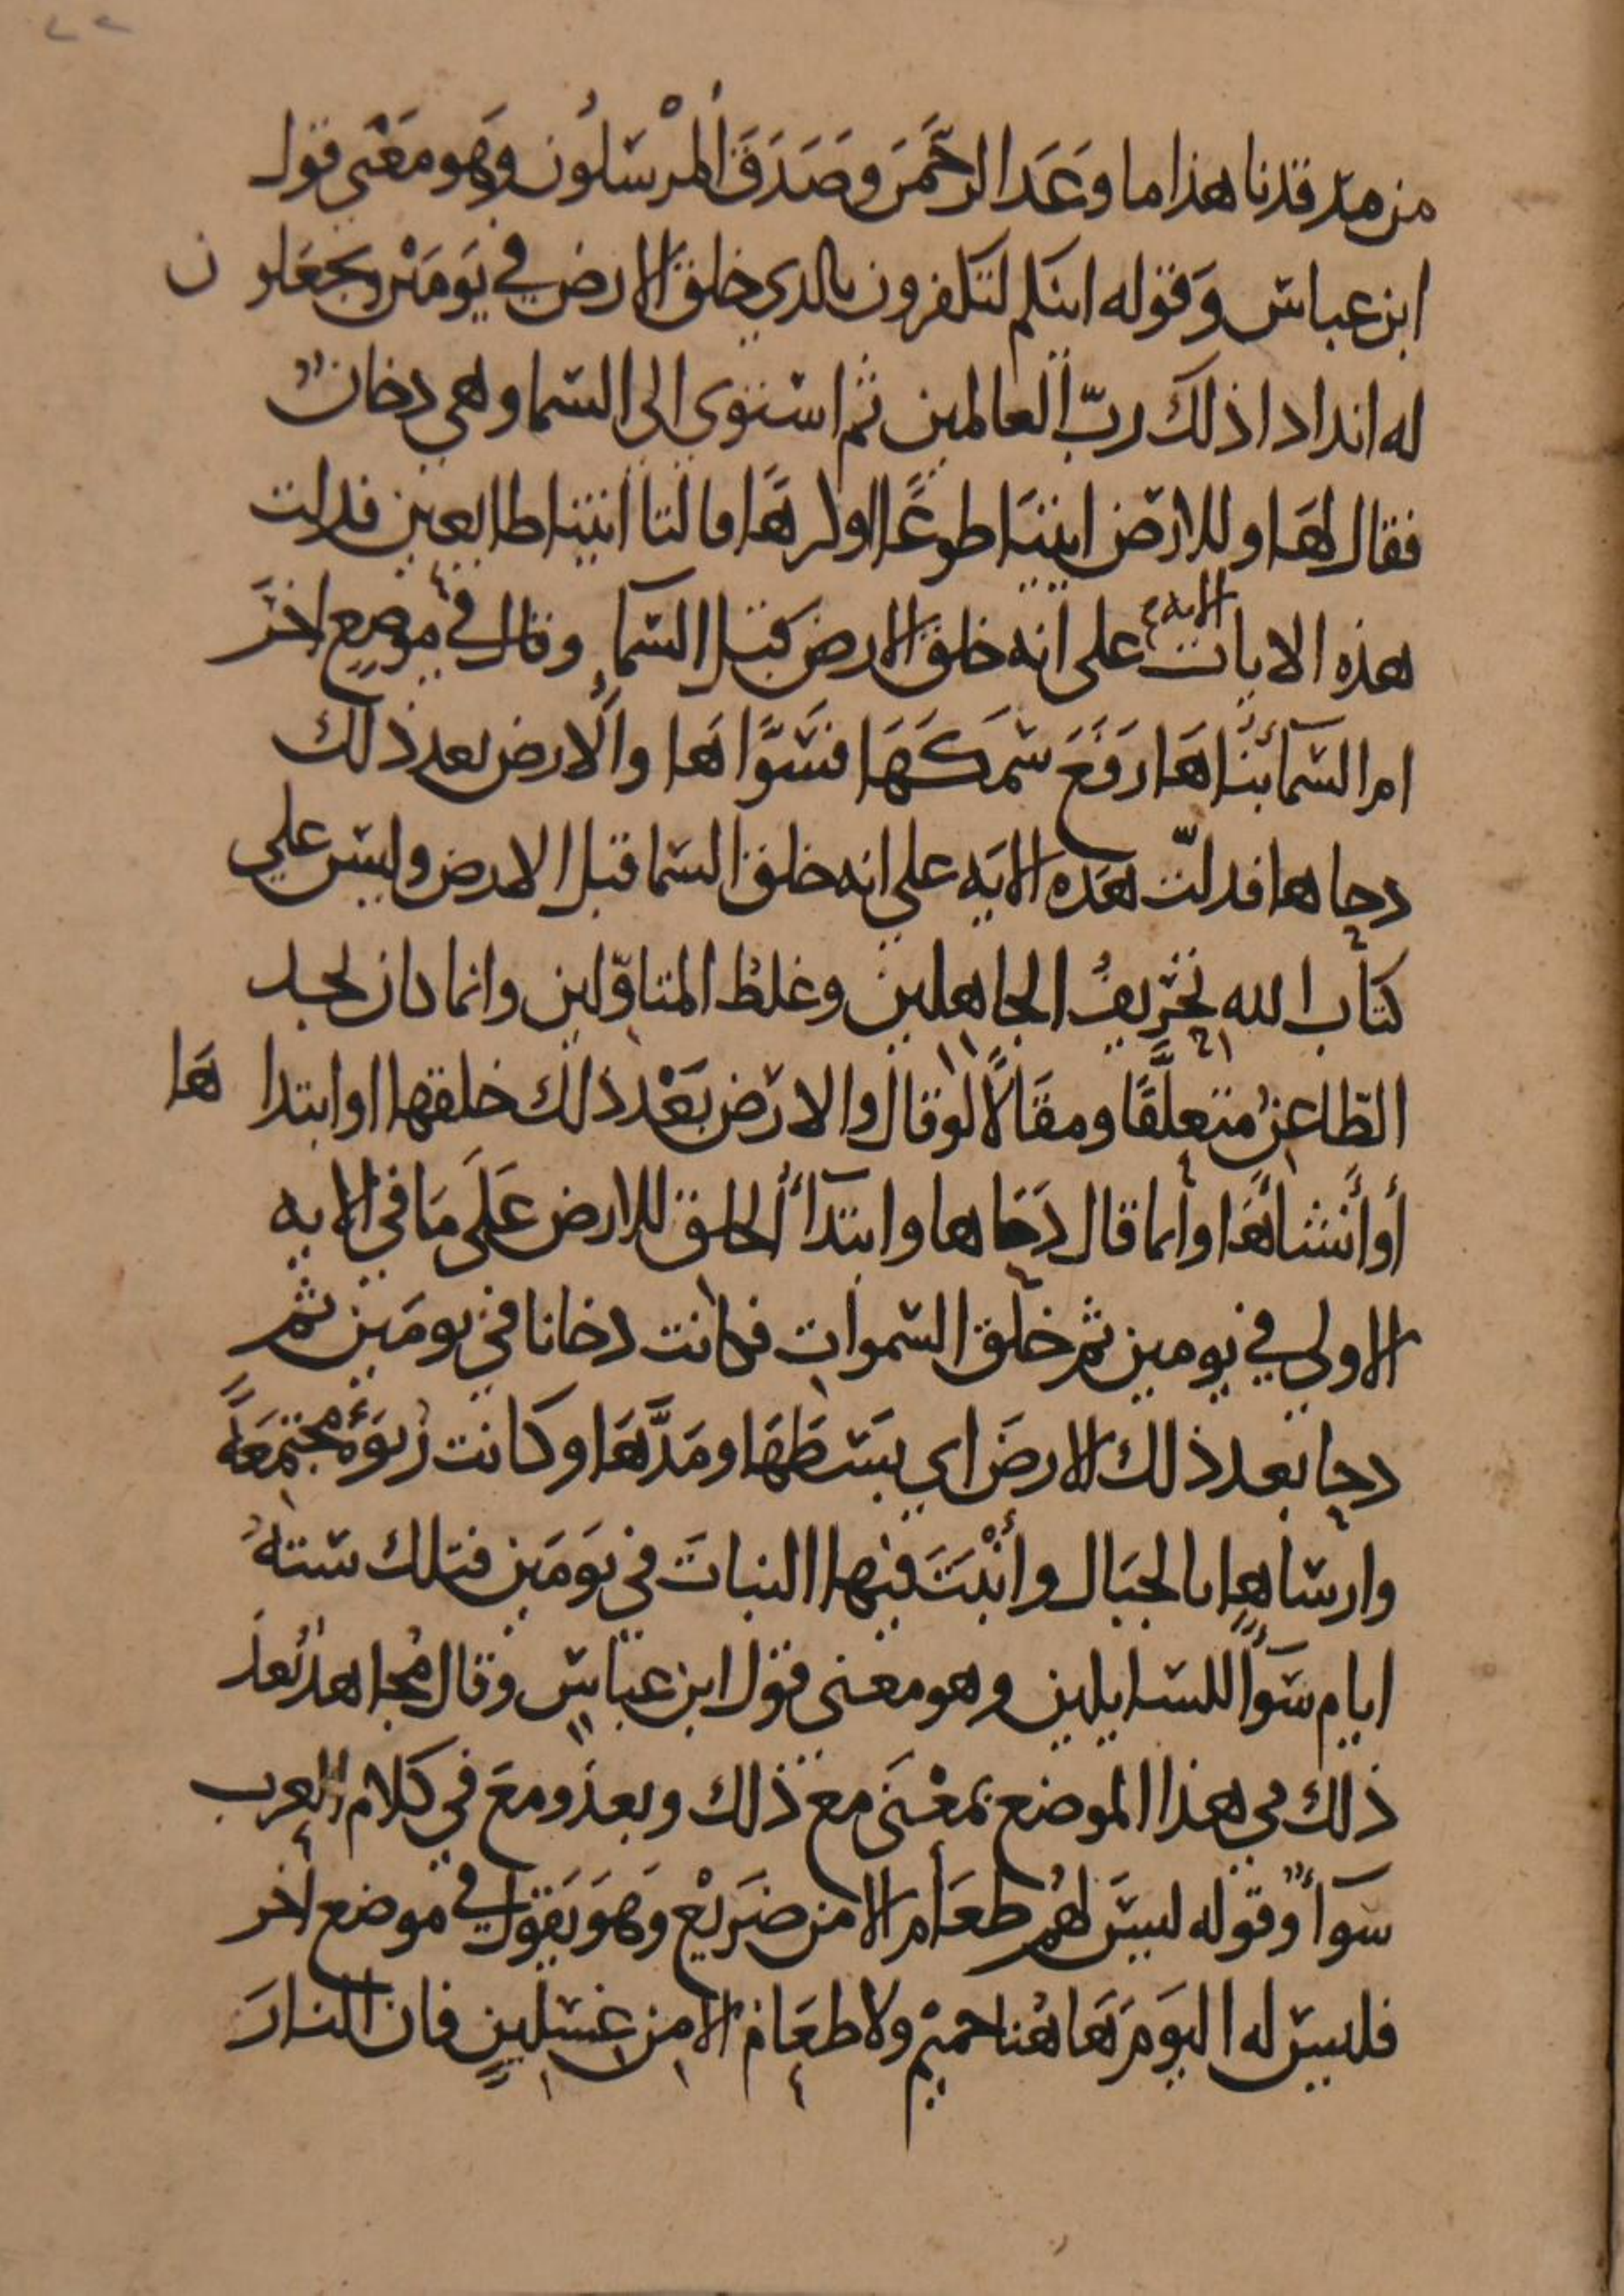 من مرقدنا هذا ما وَعَدَ الرحمَن وصَدَقَ المرْسَلُون وهو مَعْنى قول
ابن عباس وقوله اينكم لتكفرون بالدي خلق الارض في يَومَيْن وتجعَلون
له اندادا ذلك ربّ العالمين ثم استوي الي السما وهي دخانٌ
فقال لهَا وللارض ايتيَا طوعًا او كرهًا قالتا اتينا طايعين فدلت
هذه الايات الايه على انه خلق الارض قبل السماءِ وقال في موضع اخَر
ام السّمآءُ بنَاهَا رَفَعَ سَمكَهَا فسَوَّاهَا وَالارض بعد ذلك
دحاها فدلّت هذه الايَه علي انه خلق السما قبل الارض وليس علي
كتاب الله تحريفُ الجاهلين وغلطُ المتاوّلين وانما كان يجد
الطّاعنُ متعلَّقًا ومقَالاً لو قال والارض بَعْد ذلك خلقها او ابتداهَا
أو أنشأهَا وانما قال دَحَاها وابتدَأ الخلق للارض عَلَى مَا في الايه
الاولي في يومين ثم خلق السموات فكانت دخانا في يومَين ثم
دحا بعد ذلك الارضَ اي بسَطهَا ومَدَّهَا وكانت رَبوَةً مجتمعَةً
وارساها بالجبَال وأنْبَتَ فيها النباتَ في يَومَين فتلك ستةُ
ايام سَوآءً للسايلين وهو معنى قول ابن عباس وقال مُجاهدٌ بَعدَ
ذلك في هذا الموضع بمعْنَى مع ذلك وبعدُ ومعَ في كلام العرب
سَوآءٌ وقوله ليسَ لهُم طعَام الا من ضَريْع وَهوَ يَقول في موضع اخر
فليس له اليَومَ هَاهُنا حميمٌ ولا طعَام الا من غسلينٍ فان النارَ